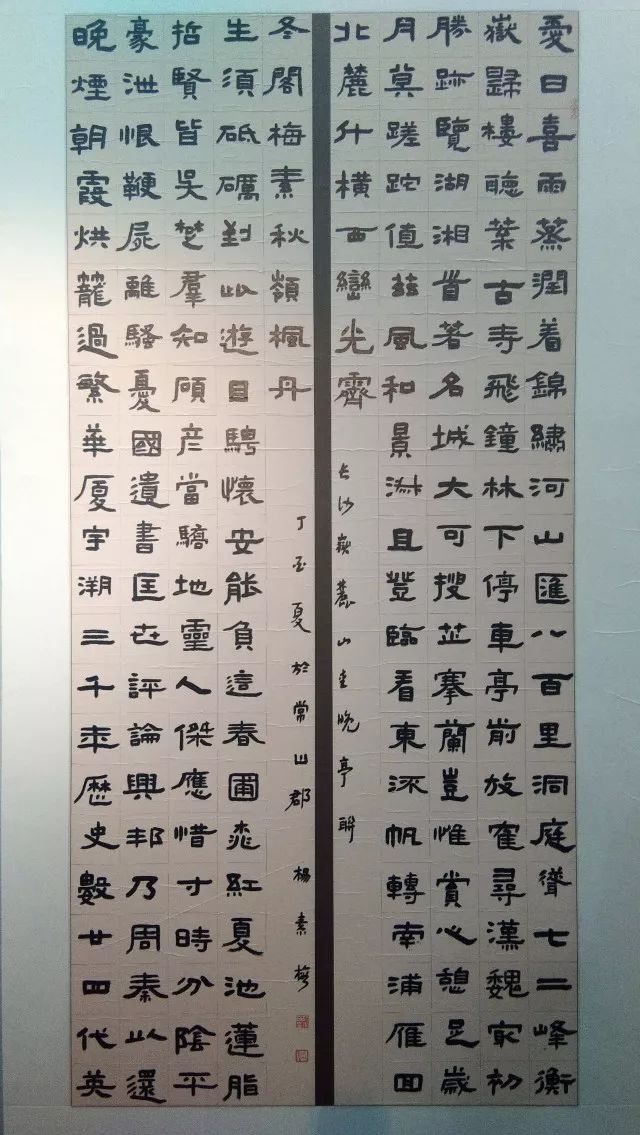 愛日喜雨蒸潤着錦繡河山匯八百里洞庭聳七二峰衡
嶽歸樓聽葉古寺飛鐘林下停車亭前放隺尋漢魏㝡初
勝跡覽湖湘首著名城大可搜芷搴蘭豈惟賞心憩足歲
月莫蹉跎值茲風和景淑且登臨看東流帆轉南浦雁回
北麓斗橫西巒光霽
長沙嶽麓山愛晚亭聯
晚煙朝霞烘籠過繁華厦宇溯三千年歷史數廿四代英
豪泄恨鞭屍離騷憂國遺書匡世評論興邦乃周秦以還
哲賢皆吳楚羣知碩彦當驕地靈人傑應惜寸時分陰平
生須砥礪對此遊目騁懷安能負這春圃桃紅夏池蓮脂
冬閣梅素秋嶺楓丹
丁酉夏於常山郡 楊素梅